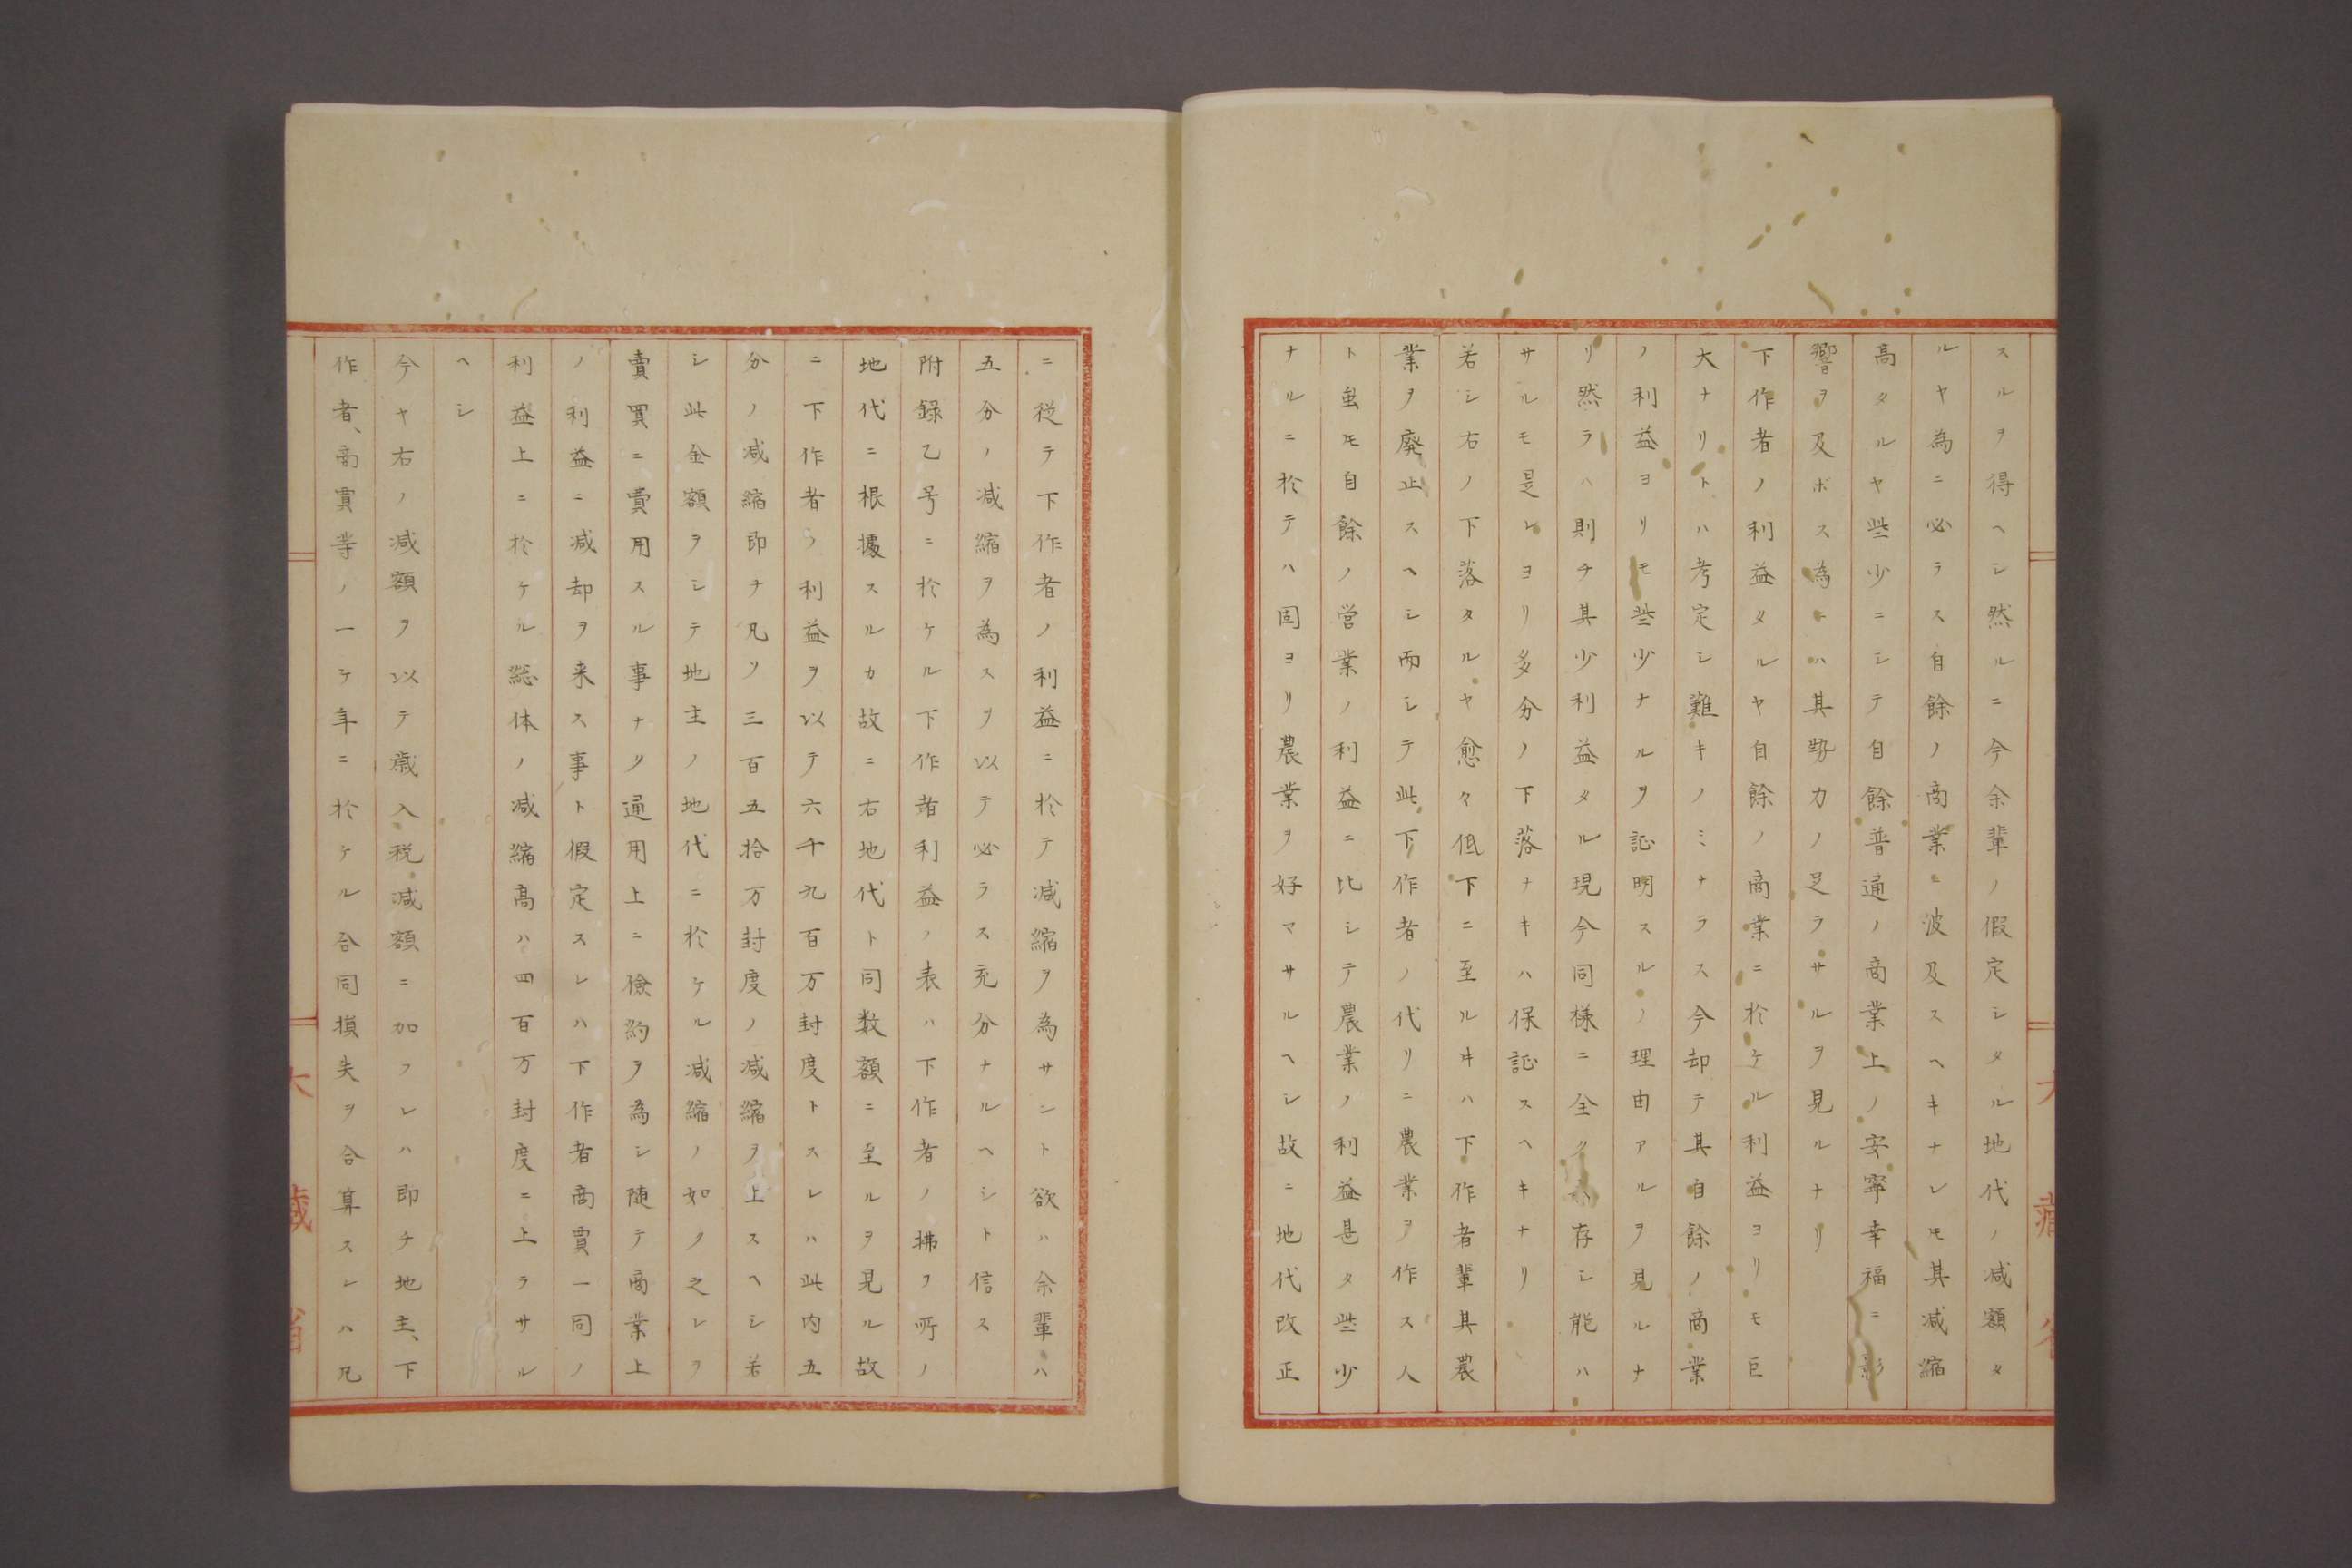 スルヲ得ヘシ然ルニ今余輩ノ假定シタル地代ノ減額タ
ルヤ為ニ必ラス自餘ノ商業ニ波及スヘキナレ𪜈其減縮
高タルヤ些少ニシテ自餘普通ノ商業上ノ安寧幸福ニ影
響ヲ及ボス為ニハ其勢力ノ足ラサルヲ見ルナリ
下作者ノ利益タルヤ自餘ノ商業ニ於ケル利益ヨリモ巨
大ナリトハ考定シ難キノミナラス今却テ其自餘ノ商業
ノ利益ヨリモ些少ナルヲ証明スルノ理由アルヲ見ルナ
リ然ラハ則チ其少利益タル現今同様ニ全ク存シ能ハ
サルモ是レヨリ多分ノ下落ナキハ保証スヘキナリ
若シ右ノ下落タルヤ愈々低下ニ至ルキハ下作者輩其農
業ヲ廃止スヘシ而シテ此下作者ノ代リニ農業ヲ作ス人
ト虽𪜈自餘ノ営業ノ利益ニ比シテ農業ノ利益甚タ些少
ナルニ於テハ固ヨリ農業ヲ好マサルヘシ故ニ地代改正
ニ従テ下作者ノ利益ニ於テ減縮ヲ為サント欲ハ余輩ハ
五分ノ減縮ヲ為スヲ以テ必ラス充分ナルヘシト信ス
附録乙号ニ於ケル下作者利益ノ表ハ下作者ノ拂フ所ノ
地代ニ根據スルカ故ニ右地代ト同数額ニ至ルヲ見ル故
ニ下作者ノ利益ヲ以テ六千九百万封度トスレハ此内五
分ノ減縮即ナ凡ソ三百五拾万封度ノ減縮ヲ上スヘシ若
シ此金額ヲシテ地主ノ地代ニ於ケル減縮ノ如ク之レヲ
賣買ニ費用スル事ナク通用上ニ儉約ヲ為シ随テ商業上
ノ利益ニ減却ヲ来ス事ト假定スレハ下作者商賈一同ノ
利益上ニ於ケル総体ノ減縮高ハ四百万封度ニ上ラサル
ヘシ
今ヤ右ノ減額ヲ以テ歳入税減額ニ加フレハ即チ地主、下
作者、商賈等ノ一ケ年ニ於ケル合同損失ヲ合算スレハ凡
大蔵省